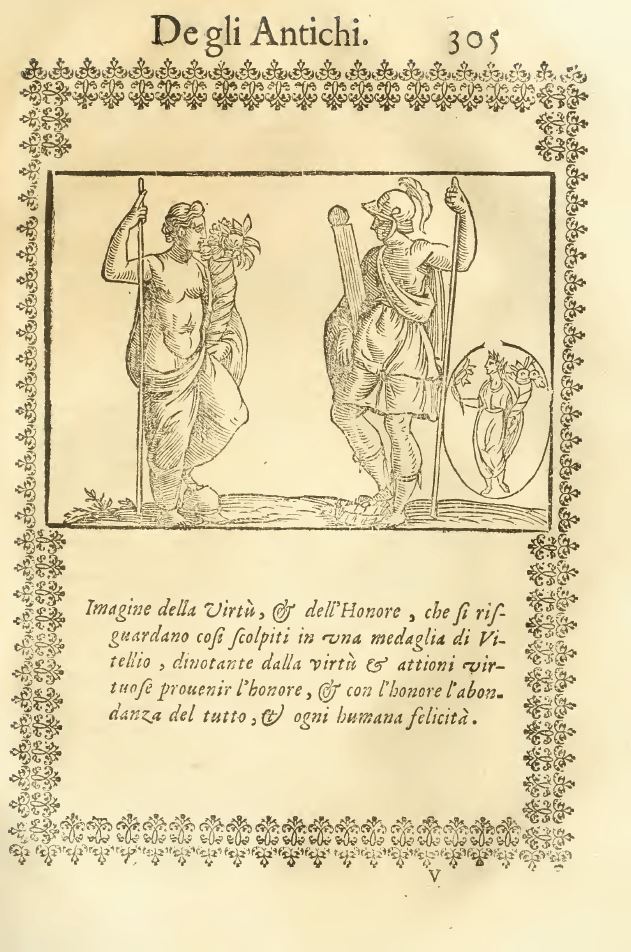 De gli Antichi. 305
Imagine della Virtù, & dell'Honore, che ſi riſ-
guardano coſi ſcolpiti in vna medaglia di Vi-
tellio, dinotante dalla virtù & attioni vir-
tuoſe prouenir l'honore, & con l'honore l'abon-
danza del tutto, & ogni humana felicità.
V